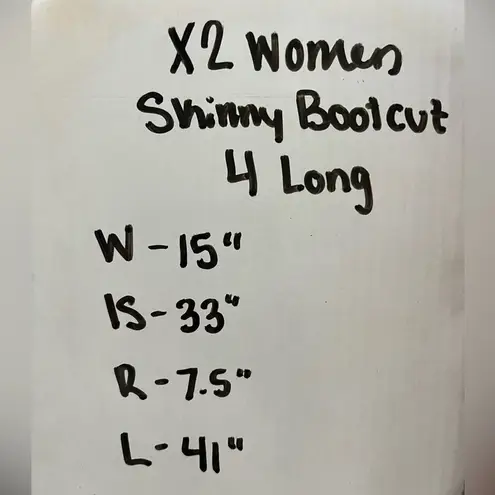 X2 Women
Skinny Bootcut
4 Long
W - 15"
IS - 33"
R - 7.5"
L - 41"